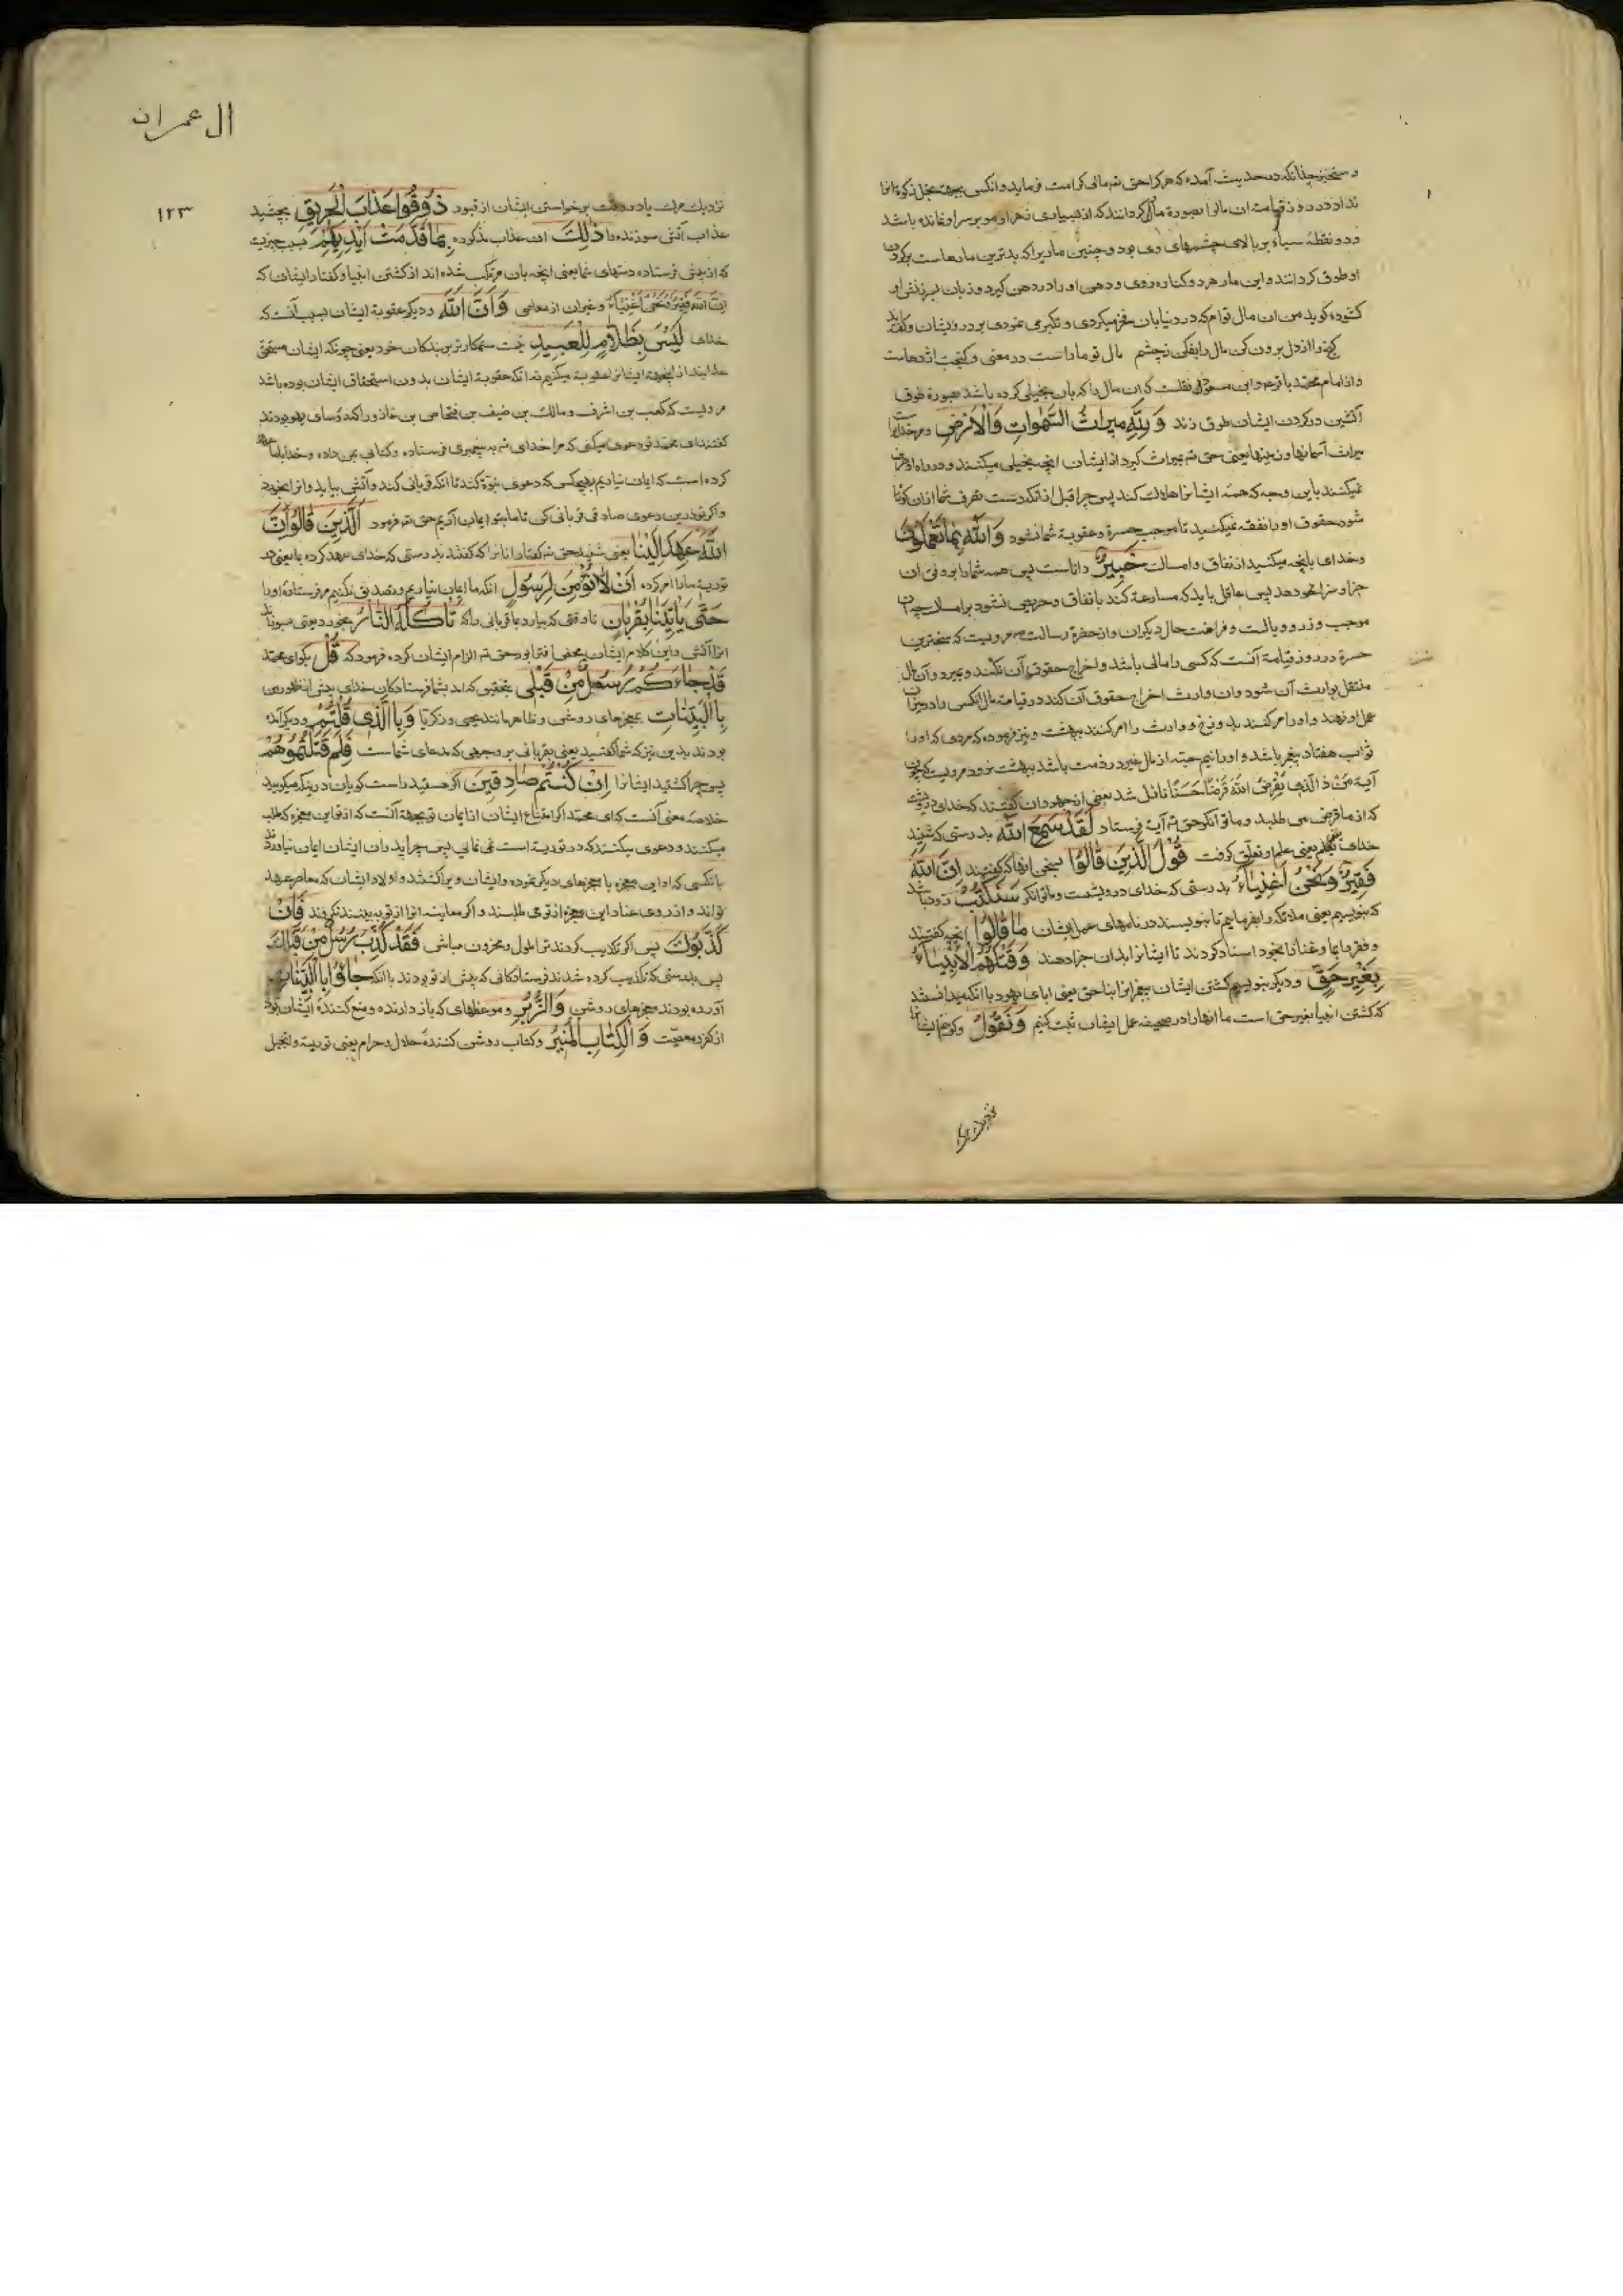 و سنجیز چنانکه در حدیث آمده که هر کرا حق تم مالی کرامت فرماید و انکس بجهت بخل زکوة انرا
نداد در روز قیامة ان مالرا بصورة ماری کردانند که از بسیاری زهر او مو بر سر او نمانده باشد
و دو نقطهٔ سیاه بر بالای چشمهای وی بود و چنین مار براکه بدترین مارهاست بر کردن
او طوق کردانند و این مار هر دو کناره روی و دهن او را در دهن کیرد و زبان بسرزنش او
کشوده کوید من ان مال توام که در دنیا بان فخر میکردی و تکبر می نمودی بر درویشان
کنج را از دل برون کن مال را بفکن ز چشم مال تو ماراست در معنی و کنجت اژدهاست
و از امام محمد باقر و ابن مسعود نقلست که ان مال را که بان بخیلی کرده باشد بصورة طوق
آتشین در کردن ایشان طوق زند وَلِلَّهِ مِيرَاثُ السَّمٰوَاتِ وَالْاَرْضِ و مر خدایراست
میراث آسمانها و زمینها یعنی حق تم میراث کیرد از ایشان انچه بخیلی میکنند و در راه او صرف
نمیکنند باین وجه که همهٔ ایشانرا هلاک کند پس چرا قبل از انکه دست تصرف شما ازان کوتاه
شود حقوق او را نفقه نمیکنید تا موجب حسرة و عقوبة شما نشود وَاللَّهُ بِمَا تَعْمَلُونَ
و خدای بانچه میکنید از انفاق و امساک خَبِيرٌ داناست پس همه شما را بر وفق ان
جزا و سزا خواهد پس عاقل باید که مسارعة کند بانفاق و حریص نشود بر امساک چه ان
موجب وزر و وبالست و فراغت حال دیکران و از حضرة رسالت ص مرویست که سخت ترین
حسرة در روز قیامة آنست که کسی را مالی باشد و اخراج حقوق آن نکند و بمیرد و آن مال
منتقل بوارث آن شود و ان وارث اخراج حقوق آن کند در قیامة مال انکس را در میزان
عمل او نهند و او را امر کنند بدوزخ و وارث را امر کنند ببهشت و نیز فرموده که مردی که او را
ثواب هفتاد پیغمبر باشد و او را نیم حبه از مال غیر در ذمت باشد ببهشت نرود مرویست که چون
آیة مَنْ ذَا الَّذِی یُقْرِضُ اللَّهَ قَرْضًا حَسَنًا نازل شد بعضی از جهودان کفتند که خدای درویشست
که از ما قرض می طلبد و ما توانکر حق تم آیة فرستاد لَقَدْ سَمِعَ اللَّهُ بدرستی که شنید
خدای یعنی علم او تعلق کرفت قَوْلَ الَّذِينَ قَالُوا سخن انها که کفتند اِنَّ اللَّهَ
فَقِيرٌ وَنَحْنُ اَغْنِيَاءُ بدرستی که خدای درویشست و ما توانکر سَنَكْتُبُ زود باشد
که بنویسیم یعنی ملائکه را بفرماییم تا بنویسند در نامهای عمل ایشان مَا قَالُوا انچه کفتند
و فقر را بما و غنا را بخود اسناد کردند تا ایشانرا بدان جزا دهند وَقَتْلَهُمُ الْاَنْبِيَاءَ
بِغَيْرِ حَقٍّ و دیکر بنویسیم کشتن ایشان پیغمبرانرا بناحق یعنی ابای یهود با انکه میدانستند
که کشتن انبیا بغیر حق است ما انها را در صحیفه عمل ایشان ثبت کنیم وَنَقُولُ و کوییم ایشانرا
نزدیک مرک
ال عمران
۱۲۳
نزدیک مرک یا در وقت برخواستن ایشان از قبور ذُوقُوا عَذَابَ الْحَرِيقِ بچشید
عذاب آتش سوزنده را ذٰلِكَ ان عذاب مذکوره بِمَا قَدَّمَتْ اَيْدِيكُمْ بسبب چیزیست
که از پیش فرستاده دستهای شما یعنی انچه بان مرتکب شده اند از کشتن انبیا و کفتار ایشان که
اِنَّ اللَّهَ فَقِيرٌ وَنَحْنُ اَغْنِيَاءُ و غیر ان از معاصی وَاَنَّ اللَّهَ و دیکر عقوبة ایشان بسبب آنست که
خدای لَيْسَ بِظَلَّامٍ لِلْعَبِيدِ نیست ستمکار تر بر بندکان خود یعنی چونکه ایشان مستحق
عذابند از اینجهة ایشانرا عقوبة میکنیم نه انکه عقوبة ایشان بدون استحقاق ایشان بوده باشد
مرویست که کعب بن اشرف و مالک بن ضیف بن فنحاص بن عازورا که رؤسای یهود بودند
کفتند ای محمد تو دعوی میکنی که مرا خدای تم به پیغمبری فرستاده و کتابی بمن داده و خدا با ما عهد
کرده است که ایمان نیاریم بهیچ کس که دعوی نبوة کند تا انکه قربانی کند و آتش بیاید و انرا بخورد
و اکر تو درین دعوی صادقی قربانی کن تا ما بتو ایمان آریم حق تم فرمود الَّذِينَ قَالُوا اِنَّ
اللَّهَ عَهِدَ اِلَيْنَا یعنی شنید حق تم کفتار انانرا که کفتند بدرستی که خدای عهد کرده بما یعنی در
توریة ما را امر کرده اَنْ لَا نُؤْمِنَ لِرَسُولٍ انکه ما ایمان نیاریم و تصدیق نکنیم مر فرستادهٔ او را
حَتّٰی یَاْتِیَنَا بِقُرْبَانٍ تا وقتی که بیارد بما قربانی را که تَاْكُلُهُ النَّارُ بخورد یعنی بسوزاند
انرا آتش و این کلام ایشان محض افترا بود حق تم الزام ایشان کرده فرمود که قُلْ بکو ای محمد
قَدْ جَاءَكُمْ رُسُلٌ مِنْ قَبْلِی بتحقیق که امد بشما فرستادکان خدای پیش از ظهور من
بِالْبَيِّنَاتِ بمعجزهای روشن و ظاهر مانند یحیی و زکریا وَبِالَّذِی قُلْتُمْ و دیکر آمده
بودند بدین نیز که شما کفتید یعنی بقربانی بر وجهی که مدعای شماست فَلِمَ قَتَلْتُمُوهُمْ
پس چرا کشتید ایشانرا اِنْ كُنْتُمْ صَادِقِينَ اکر هستید راست کویان در ینکه میکویید
خلاصه معنی آنست که ای محمد اکر امتناع ایشان از ایمان تو بجهة آنست که از تو این معجزه که طلب
میکنند و دعوی میکنند که در توریة است نمی نمایی پس چرا پدران ایشان ایمان نیاوردند
بانکسی که او این معجزه با معجزهای دیکر نموده و ایشان ویرا کشتند و اولاد ایشان که معاصر عهد
تواند و از روی عناد این معجزه از تو می طلبند و اکر معاینه انرا از تو به بینند نکروند فَاِنْ
كَذَّبُوكَ پس اکر تکذیب کردند ترا ملول و محزون مباش فَقَدْ كُذِّبَ رُسُلٌ مِنْ قَبْلِكَ
پس بدرستی که تکذیب کرده شدند فرستادکانی که پیش از تو بودند با انکه جَاؤُا بِالْبَيِّنَاتِ
آورده بودند معجزهای روشن وَالزُّبُرِ و موعظهای که باز دارنده و منع کنندهٔ ایشان بود
از کفر و معصیت وَالْكِتَابِ الْمُنِيرِ و کتاب روشن کنندهٔ حلال و حرام یعنی توریة و انجیل